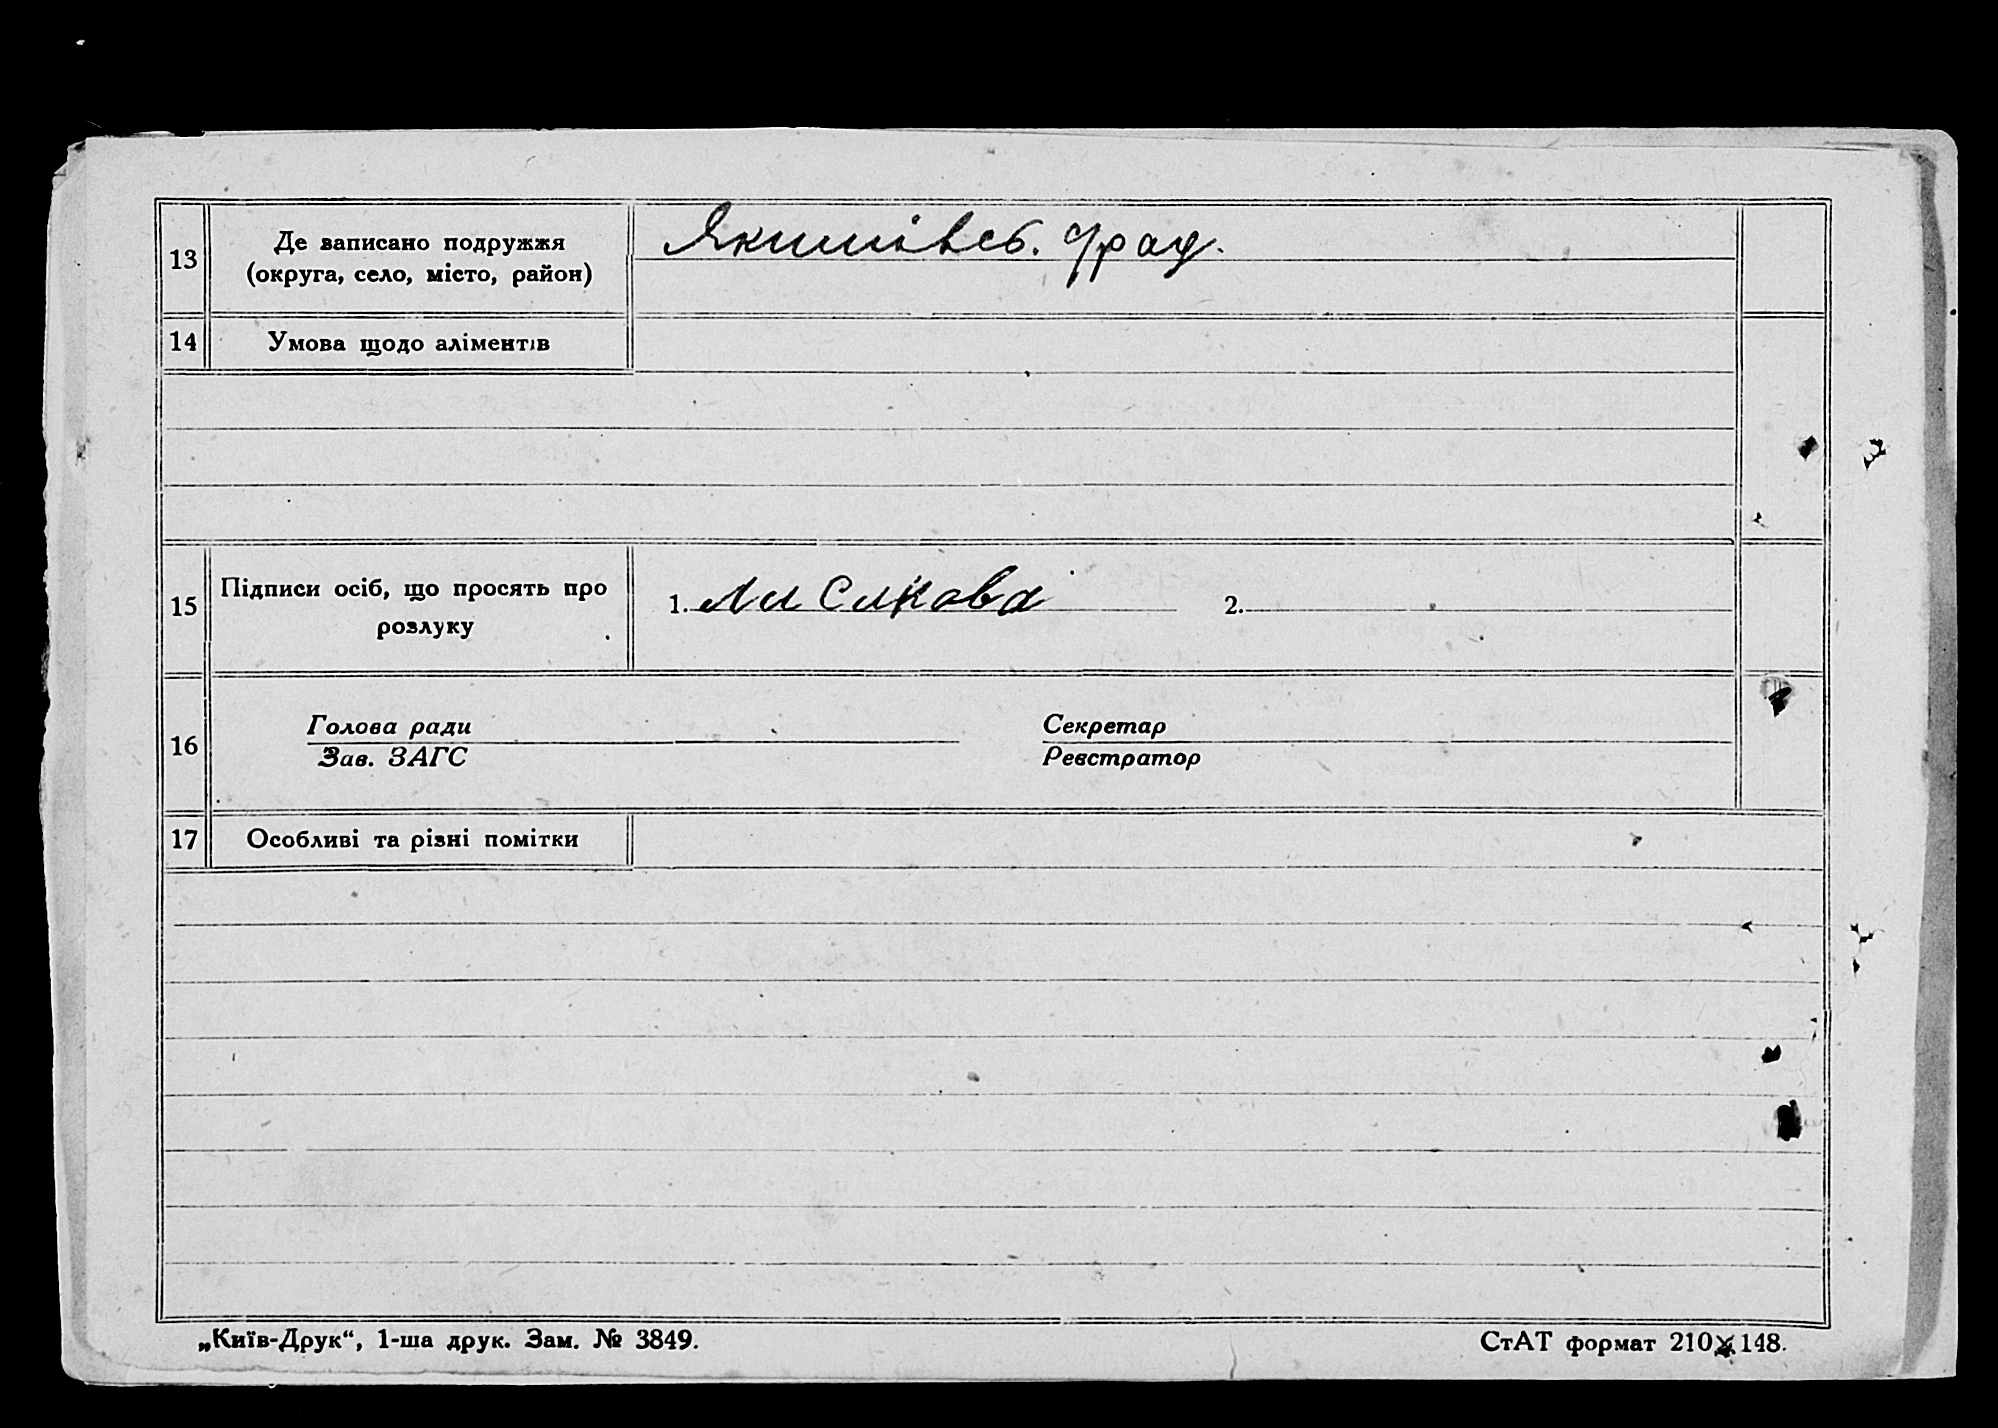 13 Де записано подружжя
(округа, село, місто, район)
Якимівсь.
14 Умова щодо аліментів
15 Підписи осіб, що просять про
розлуку
1. Лисикова 2.
16 Голова ради
Зав. ЗАГС
Секретар
Реєстратор
17 Особливі та різні помітки
„Київ-Друк“, 1-ша друк. Зам. № 3849.
СтАТ формат 210×148.